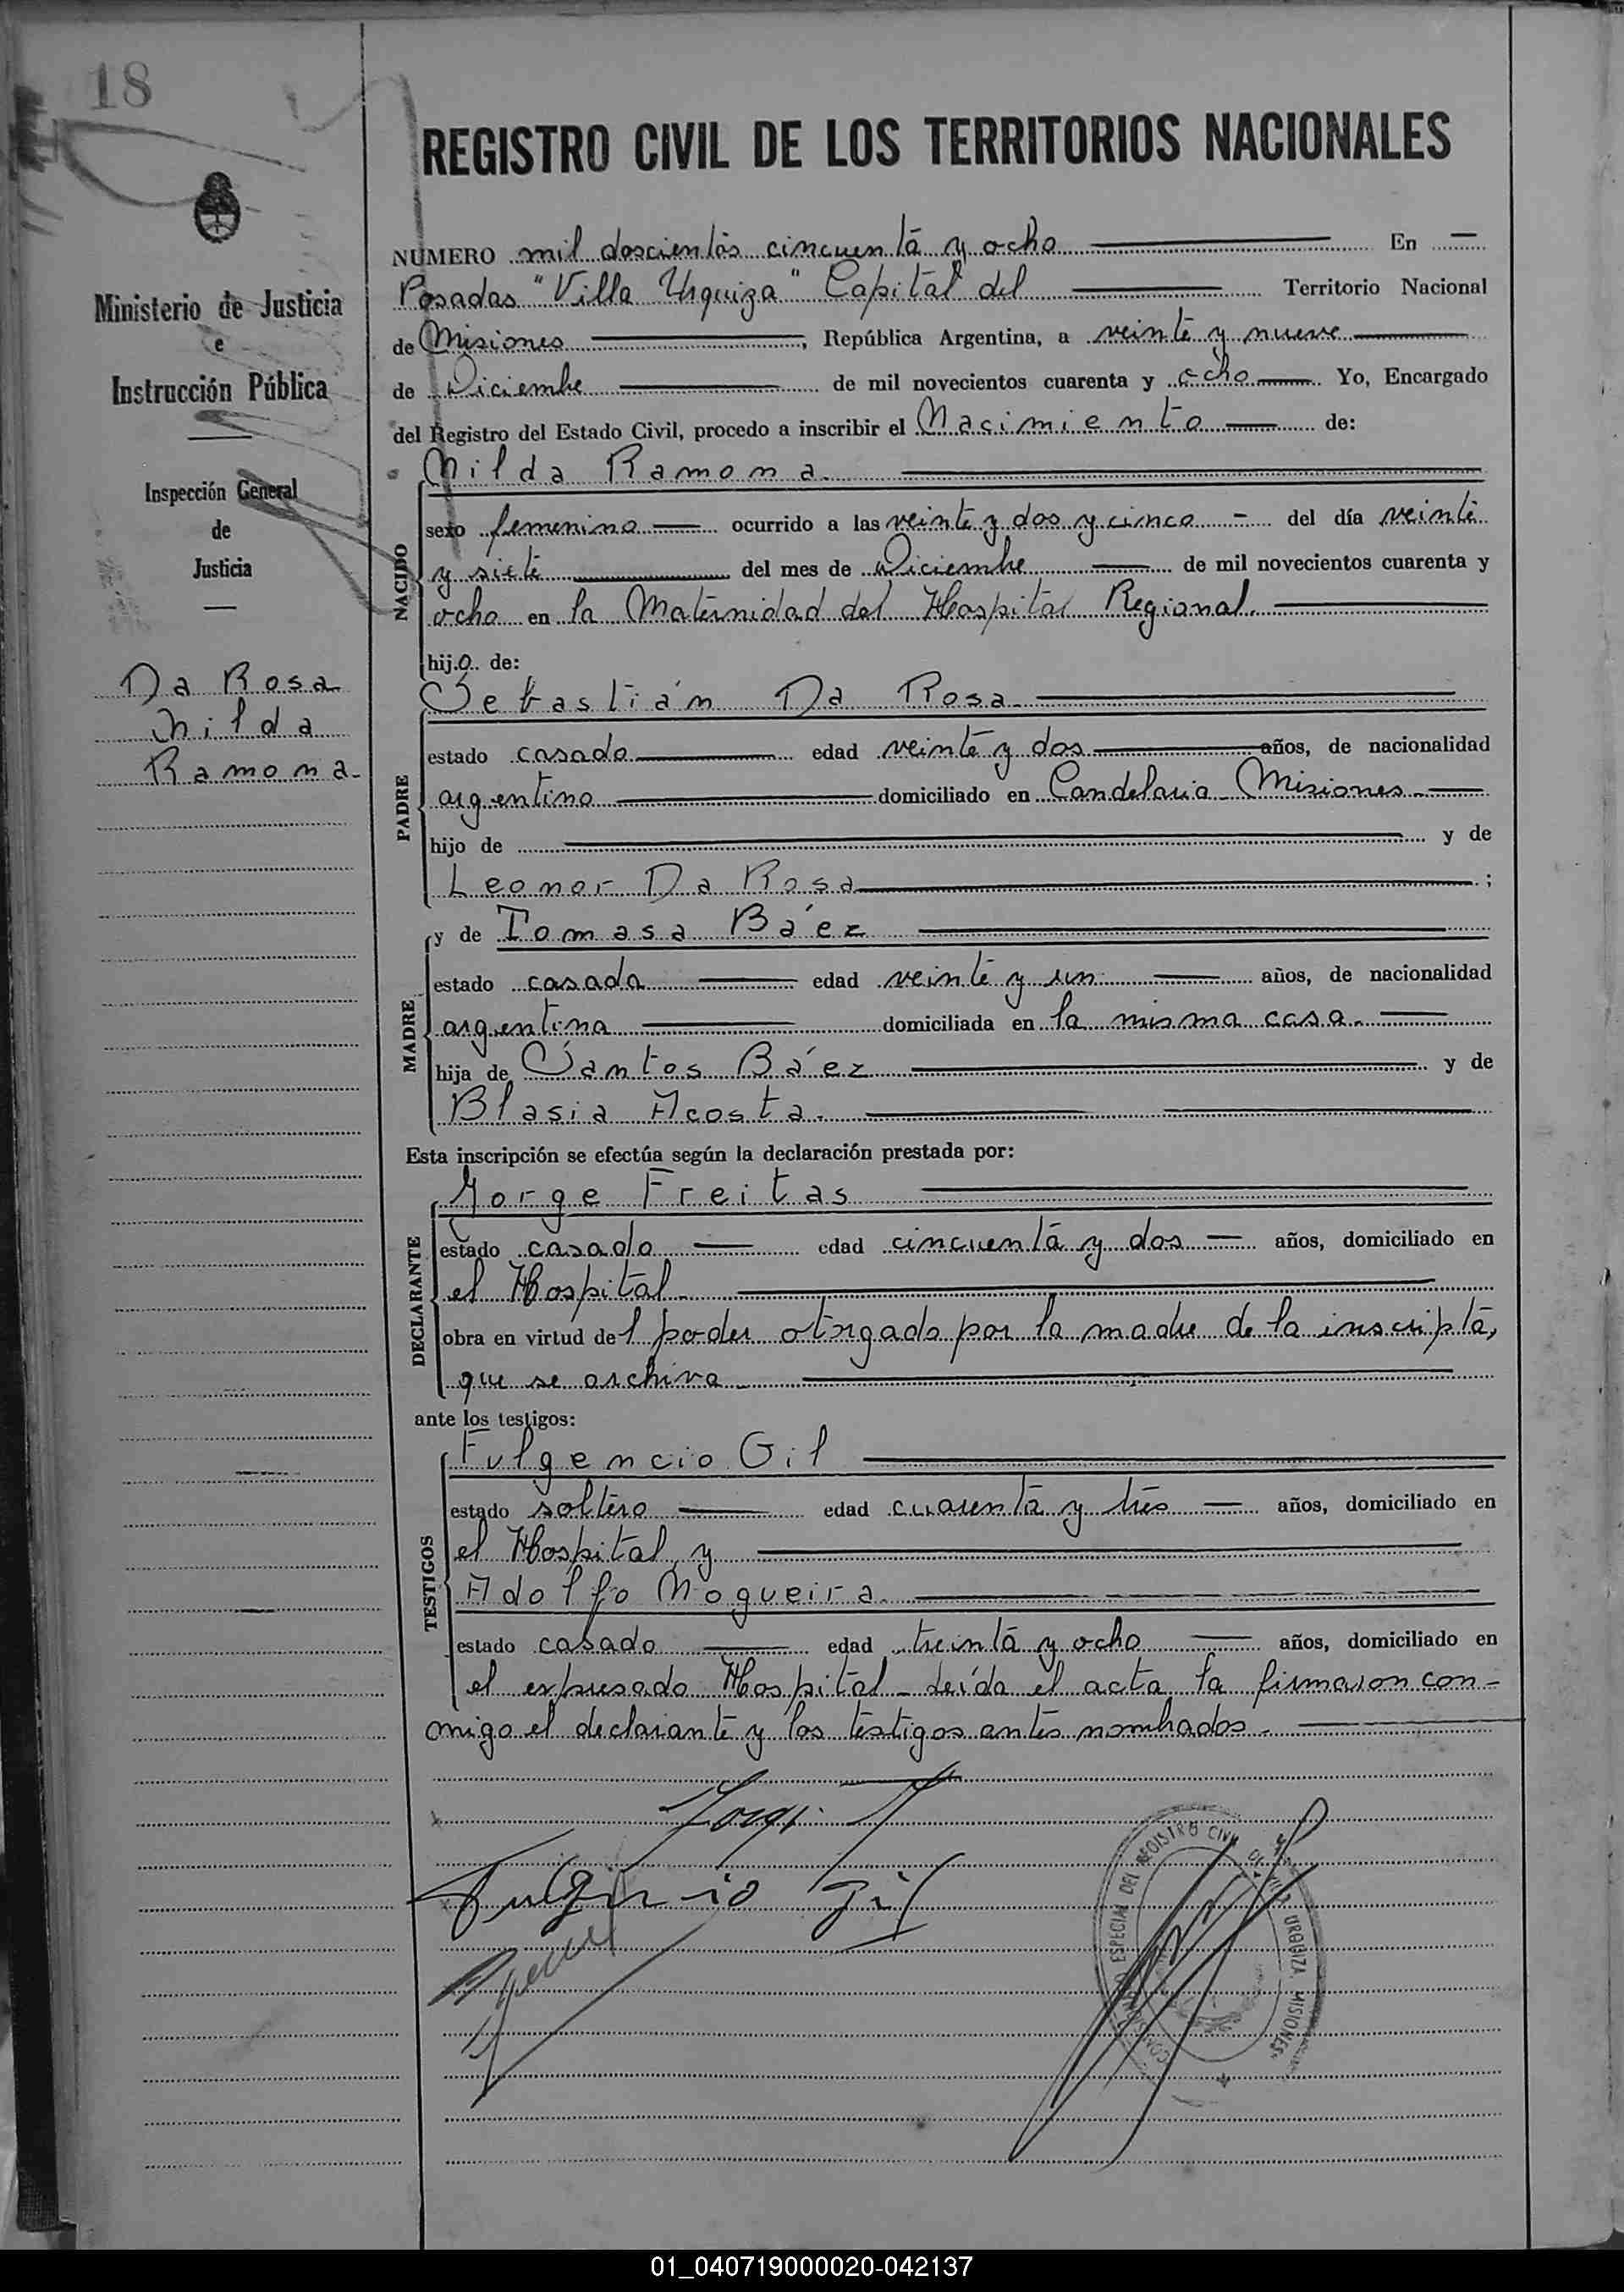 18
REGISTRO CIVIL DE LOS TERRITORIOS NACIONALES
Ministerio de Justicia
e
Instrucción Pública
Inspección General
de
Justicia
Da Rosa
Nilda
Ramona.
NUMERO mil doscientos cincuenta y ocho En
Posadas "Villa Urquiza" Capital del Territorio Nacional
de Misiones, República Argentina, a veinte y nueve
de Diciembre de mil novecientos cuarenta y ocho Yo, Encargado
del Registro del Estado Civil, procedo a inscribir el Nacimiento de:
Nilda Ramona.
NACIDO
sexo femenino ocurrido a las veinte y dos y cinco - del día veinte
y siete del mes de Diciembre de mil novecientos cuarenta y
ocho en la Maternidad del Hospital Regional.
hijo de:
Sebastián Da Rosa.
PADRE
estado casado edad veinte y dos años, de nacionalidad
argentino domiciliado en Candelaria - Misiones.
hijo de y de
Leonor Da Rosa ;
y de Tomasa Báez
MADRE
estado casada edad veinte y un años, de nacionalidad
argentina domiciliada en la misma casa.
hija de Santos Báez y de
Blasia Acosta.
Esta inscripción se efectúa según la declaración prestada por:
Jorge Freitas
DECLARANTE
estado casado edad cincuenta y dos años, domiciliado en
el Hospital
obra en virtud del poder otorgado por la madre de la inscripta,
que se archiva
ante los testigos:
Fulgencio Gil
TESTIGOS
estado soltero edad cuarenta y tres años, domiciliado en
el Hospital, y
Adolfo Nogueira.
estado casado edad treinta y ocho años, domiciliado en
el expresado Hospital - Leída el acta la firmaron con-
migo el declarante y los testigos antes nombrados.
Jorge F
Fulgencio Gil
ESPECIAL DEL REGISTRO CIVIL DE VILLA URQUIZA MISIONES
01_040719000020-042137